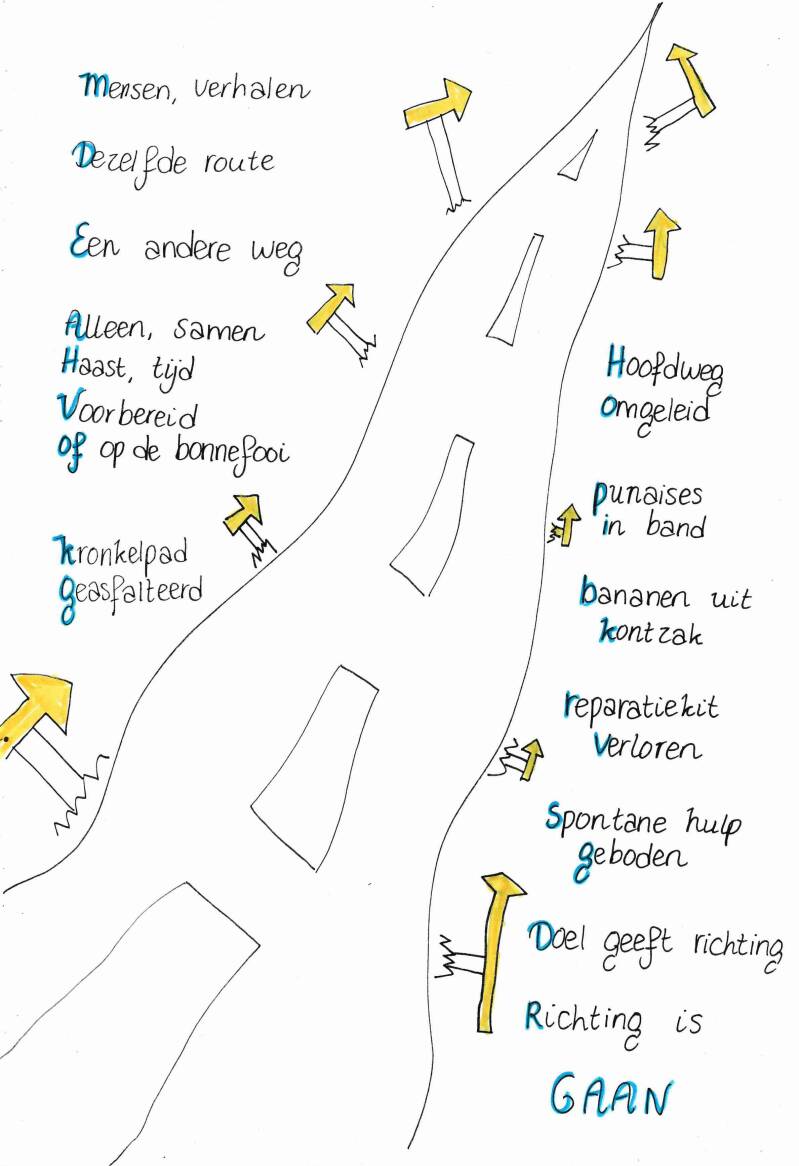 Mensen, verhalen
Dezelfde route
Een andere weg
Alleen, samen
Haast, tijd
Voorbereid
of op de bonnefooi
kronkelpad
geasfalteerd
Hoofdweg
omgeleid
punaises
in band
bananen uit
kontzak
reparatiekit
verloren
Spontane hulp
geboden
Doel geeft richting
Richting is
GAAN